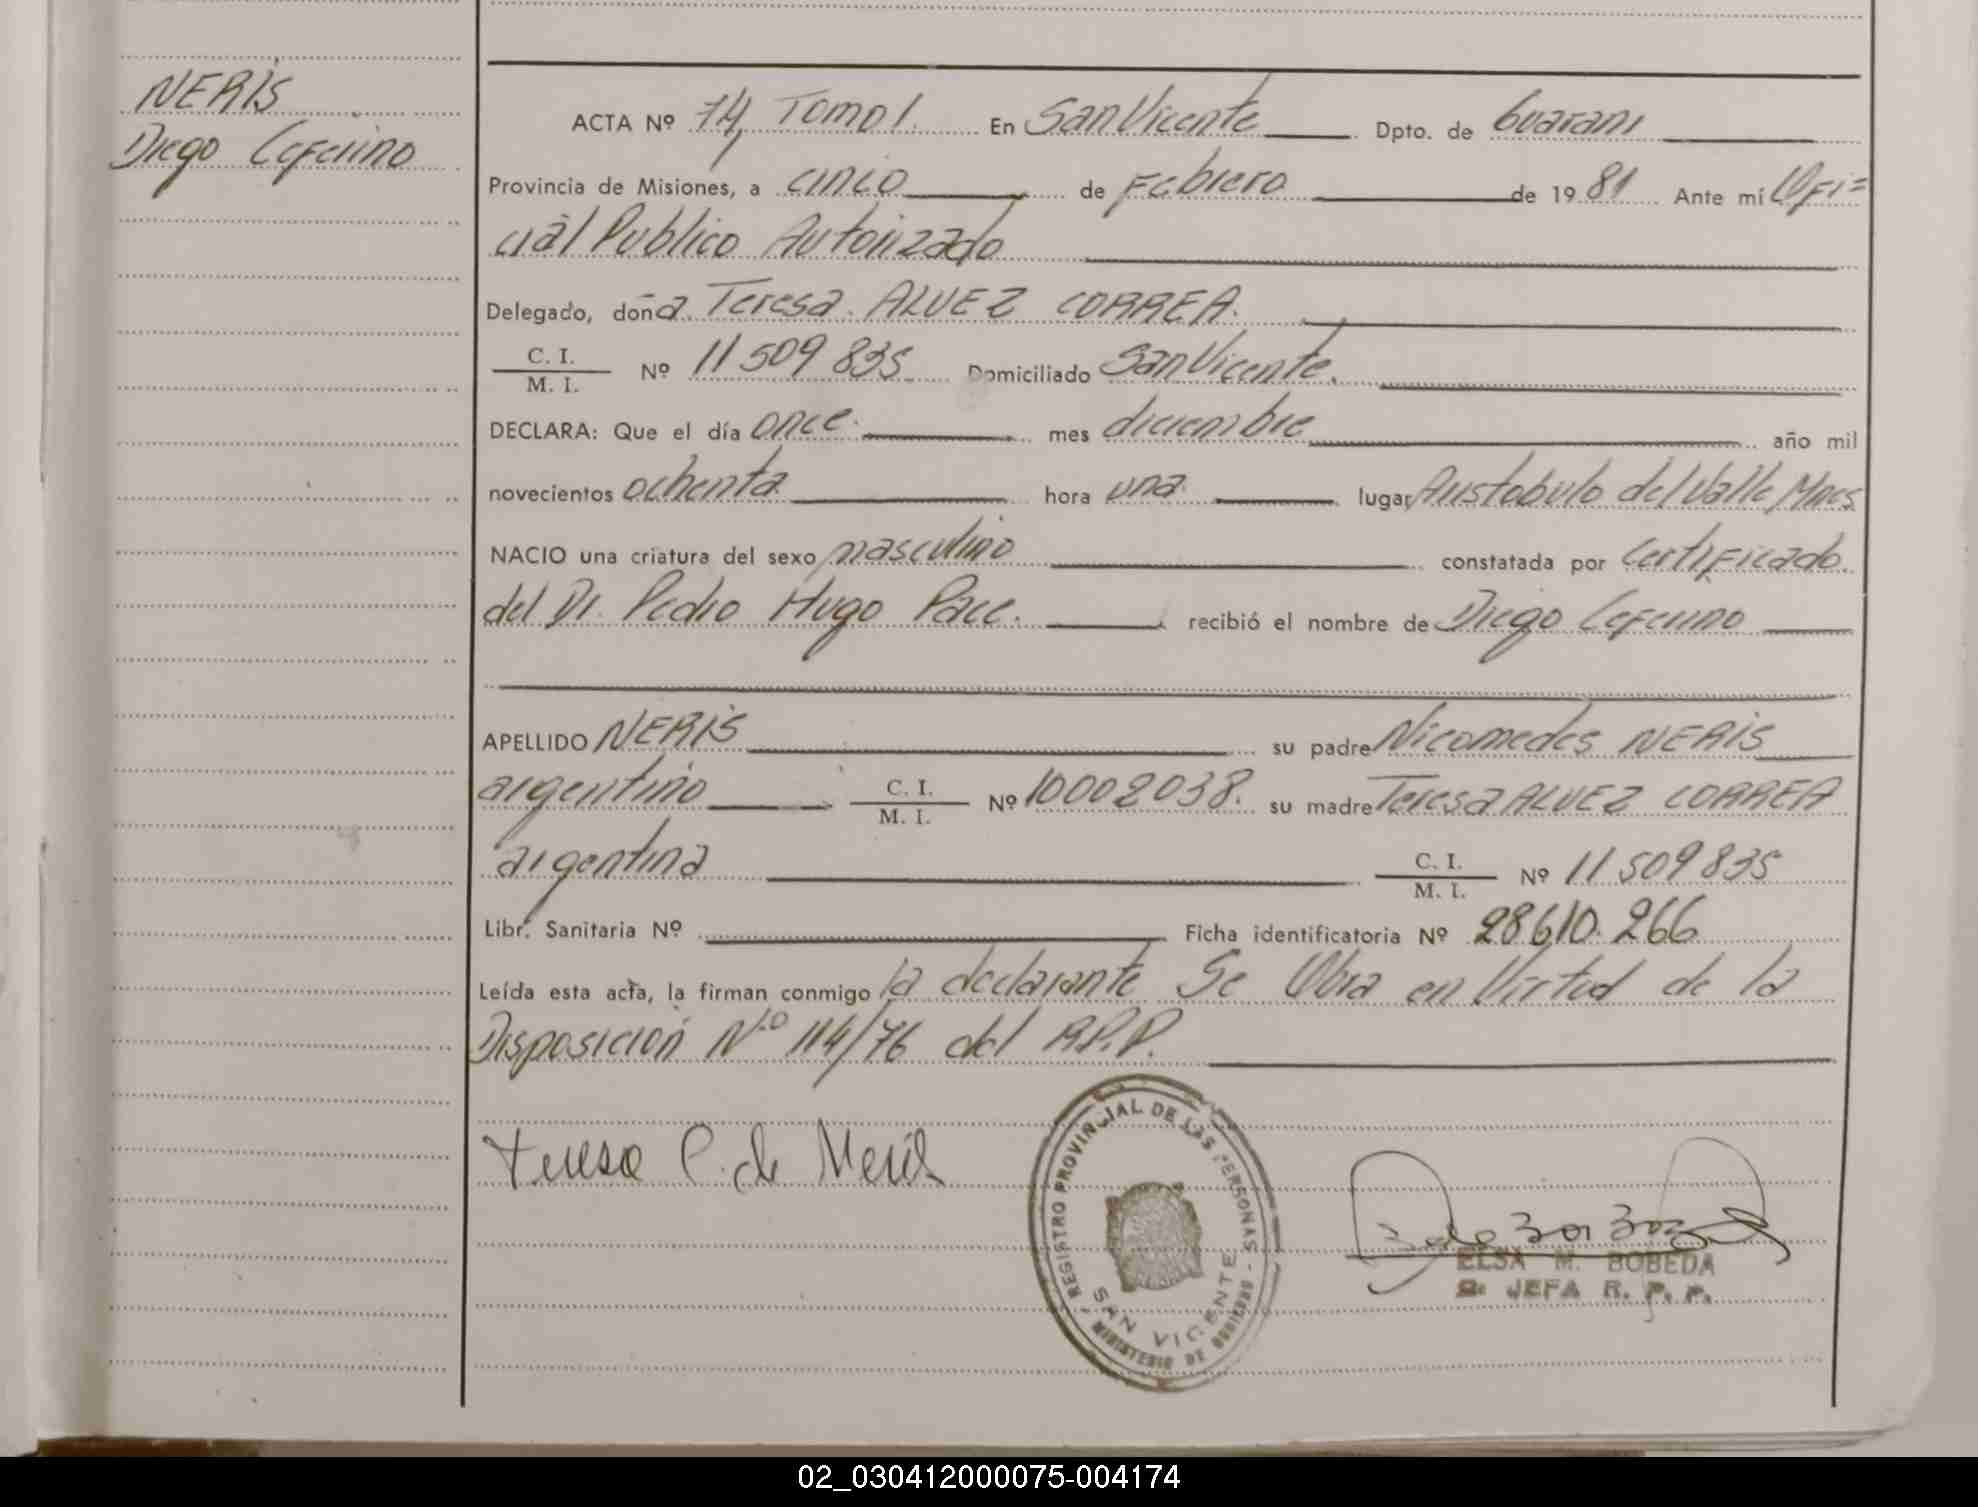 NERIS
Diego Ceferino
ACTA Nº 74, Tomo I. En San Vicente Dpto. de Guarani
Provincia de Misiones, a cinco de Febrero de 1981 Ante mí Ofi=
cial Publico Autorizado
Delegado, doña Teresa ALVEZ CORREA.
C. I.
M. I. Nº 11509835 Domiciliado San Vicente.
DECLARA: Que el día once. mes diciembre año mil
novecientos ochenta hora una lugar Aristobulo del Valle Mnes
NACIO una criatura del sexo masculino constatada por Certificado
del Dr. Pedro Hugo Pace. recibió el nombre de Diego Ceferino
APELLIDO NERIS su padre Nicomedes NERIS
argentino C. I.
M. I. Nº 10002038. su madre Teresa ALVEZ CORREA
argentina C. I.
M. I. Nº 11509835
Libr. Sanitaria Nº Ficha identificatoria Nº 28610.266
Leída esta acta, la firman conmigo la declarante Se Obra en Virtud de la
Disposición Nº 114/76 del R.P.P.
Teresa C. de Neris
REGISTRO PROVINCIAL DE LAS PERSONAS -
MINISTERIO DE GOBIERNO
SAN VICENTE
ELSA M. BOBEDA
2ª JEFA R. P. P.
02_030412000075-004174